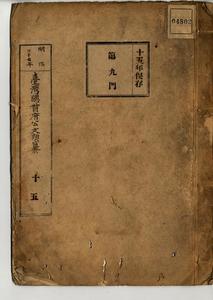 04802
十五年保存
第九門
明治
臺灣總督府公文類纂
十五